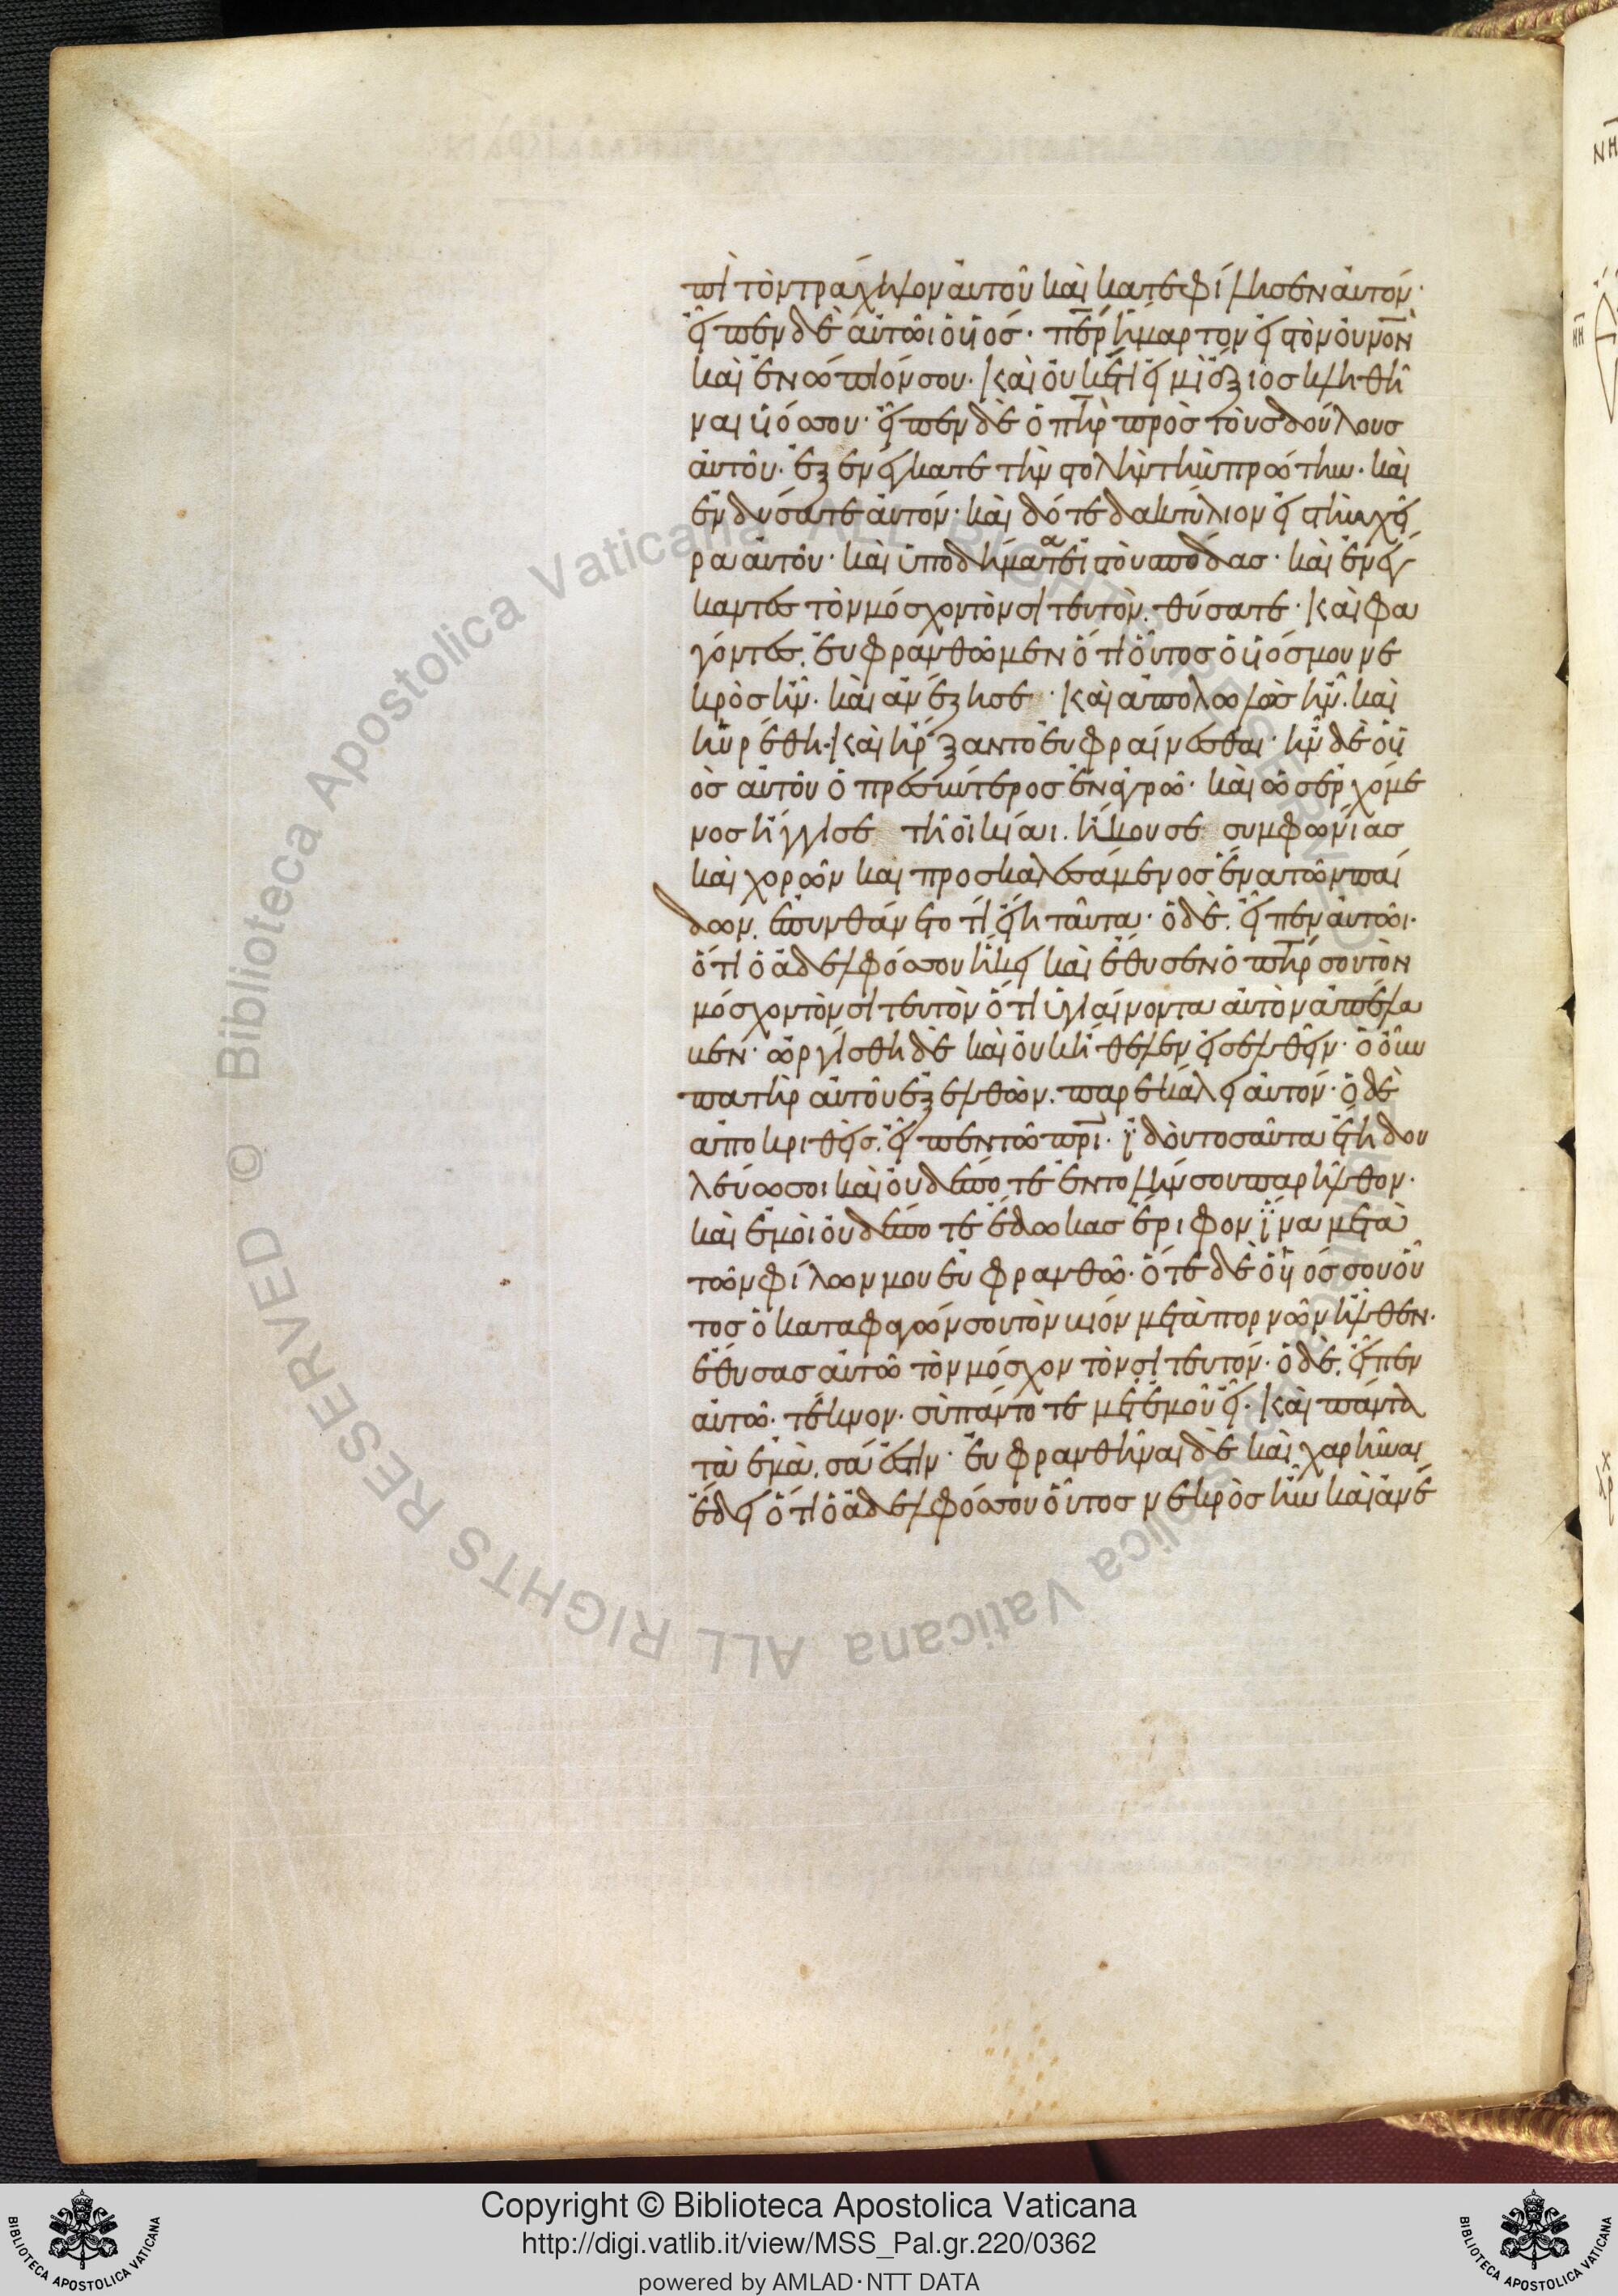 πὶ τὸν τράχηλον αὐτοῦ καὶ κατεφίλησεν αὐτόν·
εἶπεν δὲ αὐτῶι ὁ υἱός· περ ἥμαρτον εἰς τὸν οὐνον
καὶ ἐνώπιόν σου· καὶ οὐκέτι εἰμὶ ἄξιος κληθῆ
ναι υἱός σου· εἶπεν δὲ ὁ πηρ πρὸς τοὺς δούλους
αὐτοῦ· ἐξενέγκατε τὴν στολὴν τὴν πρώτην· καὶ
ἐνδύσατε αὐτόν· καὶ δότε δακτύλιον εἰς τὴν χεῖ
ρα αὐτοῦ· καὶ ὑποδήματα εἰς τοὺς πόδας· καὶ ἐνέγ
καντες τὸν μόσχον τὸν σιτευτὸν θύσατε· καὶ φα
γόντες εὐφρανθῶμεν ὅτι οὗτος ὁ υἱός μου νε
κρὸς ἦν· καὶ ἀνέζησε· καὶ ἀπολωλὼς ἦν· καὶ
ηὑρέθη· καὶ ἤρξαντο εὐφραίνεσθαι· ἦν δὲ ὁ υἱ
ὸς αὐτοῦ ὁ πρεσβύτερος ἐν ἀγρῶ· καὶ ὡς ἐρχόμε
νος ἤγγισε τῆ οἰκίαι· ἤκουσε συμφωνίας
καὶ χορῶν καὶ προσκαλεσάμενος ἕνα τῶν παί
δων. ἐπυνθάνετο τί εἴη ταῦτα· ὁ δὲ. εἶπεν αὐτῶι·
ὅτι ὁ ἀδελφός σου ἥκει καὶ ἔθυσεν ὁ πηρ σου τὸν
μόσχον τὸν σιτευτὸν ὅτι ὑγιαίνοντα αὐτὸν ἀπέλα
βεν· ὠργίσθη δὲ καὶ οὐκ ἤθελεν εἰσελθεῖν· ὁ οὖν
πατὴρ αὐτοῦ ἐξελθὼν. παρεκάλει αὐτόν· ὁ δὲ
ἀποκριθεὶς. εἶπεν τῶ πρι· ἰδοὺ τοσαῦτα ἔτη δου
λεύω σοι καὶ οὐδέποτε ἐντολήν σου παρῆλθον·
καὶ ἐμοὶ οὐδέποτε ἔδωκας ἔριφον ἵνα μετὰ
τῶν φίλων μου εὐφρανθῶ· ὅτε δὲ ὁ υἱός σου οὗ
τος ὁ καταφαγών σου τὸν βίον μετὰ πορνῶν ἦλθεν·
ἔθυσας αὐτῶ τὸν μόσχον τὸν σιτευτόν· ὁ δὲ. εἶπεν
αὐτῶ· τέκνον· σὺ πάντοτε μετ ἐμοῦ εἶ· καὶ πάντα
τὰ ἐμὰ. σά ἐστιν· εὐφρανθῆναι δὲ καὶ χαρῆναι
ἔδει ὅτι ὁ ἀδελφός σου οὗτος νεκρὸς ἦν καὶ ἀνέ